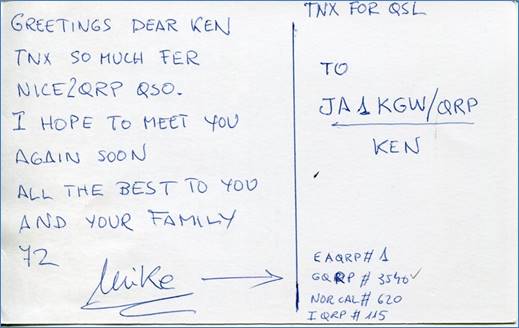 GREETINGS DEAR KEN
TNX SO MUCH FER
NICE 2QRP QSO.
I HOPE TO MEET YOU
AGAIN SOON
ALL THE BEST TO YOU
AND YOUR FAMILY
72
Mike
TNX FOR QSL
TO
JA1KGW/QRP
KEN
EAQRP# 1
GQRP # 3540
NORCAL # 620
IQRP # 115